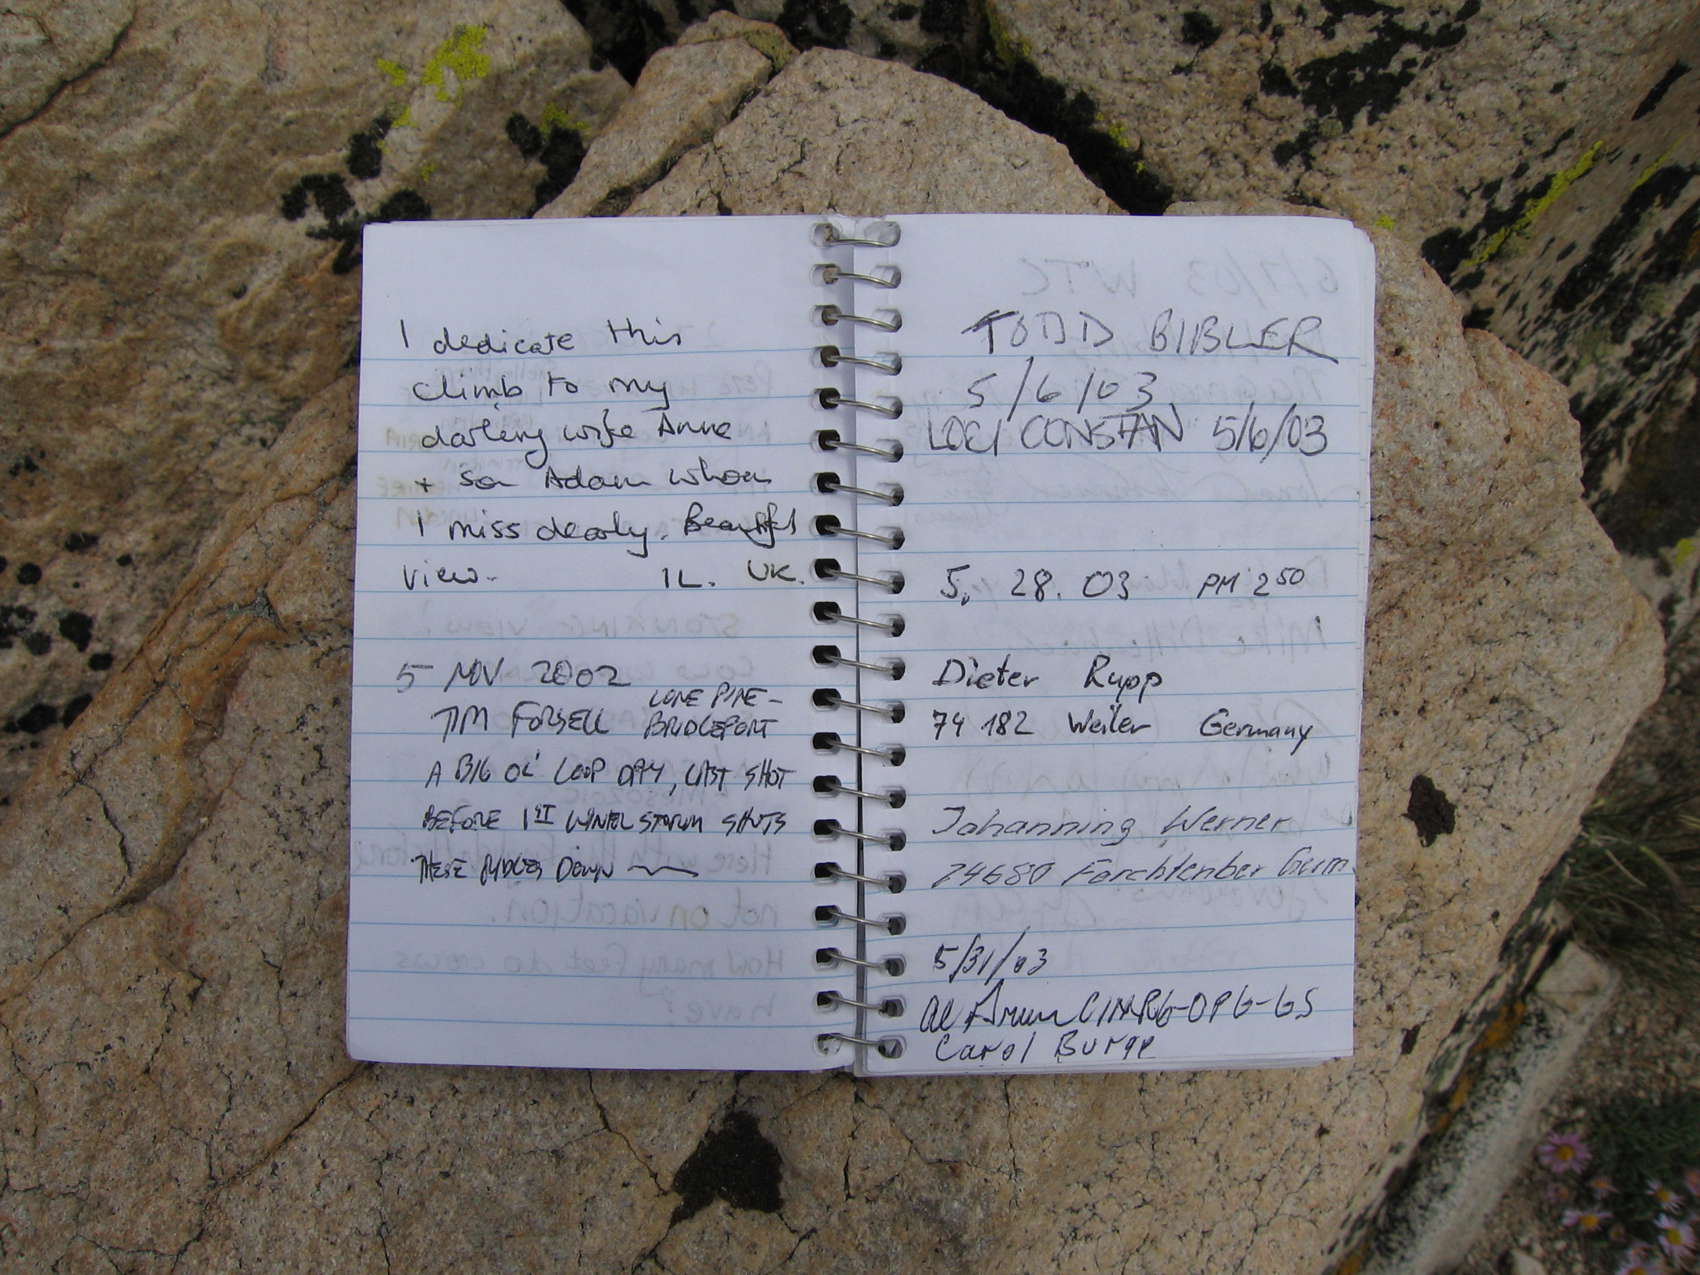 I dedicate this
climb to my
darling wife Anne
+ son Adam whom
I miss dearly. Beautiful
view. IL. UK.
5 NOV 2002
TIM FORSELL LONE PINE -
BRIDGEPORT
A BIG OL' LOOP DAY, LAST SHOT
BEFORE 1ST WINTER STORM SHUTS
THESE RIDGES DOWN
TODD BIBLER
5/6/03
LOEI CONSTAN 5/6/03
5. 28. 03 PM 2 50
Dieter Rupp
74 182 Weiler Germany
Johanning Werner
74680 Forchtenber Germ.
5/31/03
Carol Burge